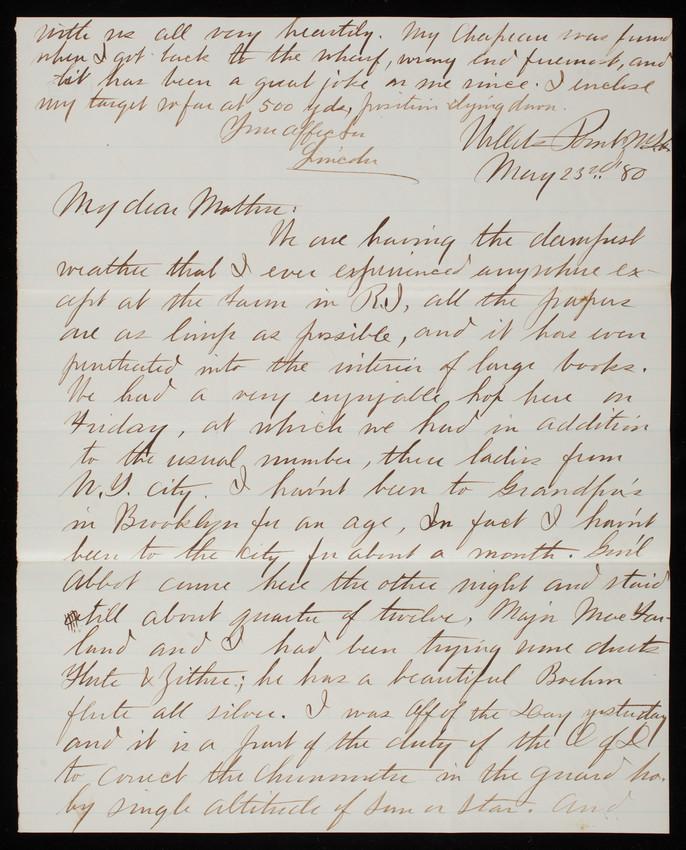 with us all very heartily. My Chapeau was found
when I got back to the wharf, wrong end foremost, and
it has been a great joke on me since. I enclose
my target so far at 500 yds, position lying down.
Your affec. son
Lincoln
Willets Point, N.Y.H.
May 23rd '80
My dear Mother:
We are having the dampest
weather that I ever experienced anywhere ex-
cept at the Farm in R.I, all the papers
are as limp as possible, and it has even
penetrated into the interior of large books.
We had a very enjoyable hop here on
Friday, at which we had in addition
to the usual number, three ladies from
N.Y. City. I havn't been to Grandpa's
in Brooklyn for an age, In fact I havn't
been to the city for about a month. Gen'l
Abbot came here the other night and staid
till about quarter of twelve, Major MacFar-
land and I had been trying some duets
Flute & Zither; he has a beautiful Boehm
flute all silver. I was Off of the Day yesterday
and it is a part of the duty of the O of D
to correct the Chronometer in the guard ho.
by single altitude of sun or star. And